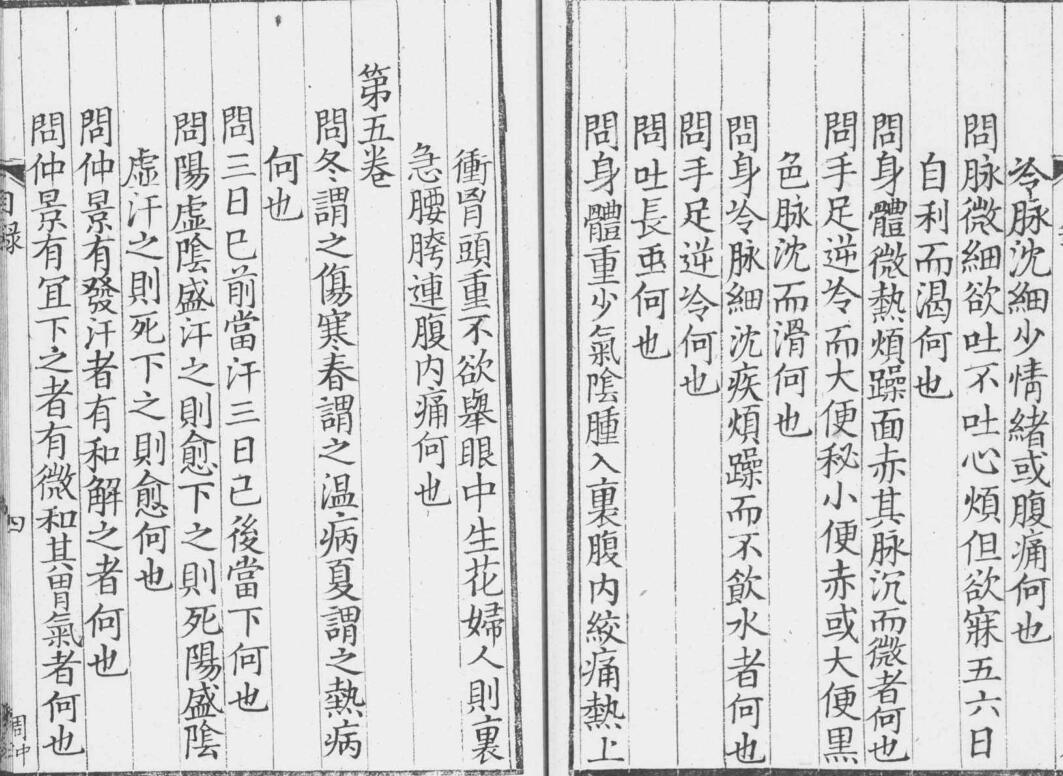 冷脉沈細少情緒或腹痛何也
問脉微細欲吐不吐心煩但欲寐五六日
自利而渴何也
問身體微熱煩躁面赤其脉沉而微者何也
問手足逆冷而大便秘小便赤或大便黒
色脉沈而滑何也
問身冷脉細沈疾煩躁而不飲水者何也
問手足逆冷何也
問吐長䖝何也
問身體重少氣隂腫入裏腹内絞痛熱上
衝胷頭重不欲舉眼中生花婦人則裏
急腰胯連腹内痛何也
第五卷
問冬謂之傷寒春謂之温病夏謂之熱病
何也
問三日已前當汗三日已後當下何也
問陽虚隂盛汗之則愈下之則死陽盛隂
虚汗之則死下之則愈何也
問仲景有發汗者有和解之者何也
問仲景有宜下之者有微和其胃氣者何也
目録
四
周中